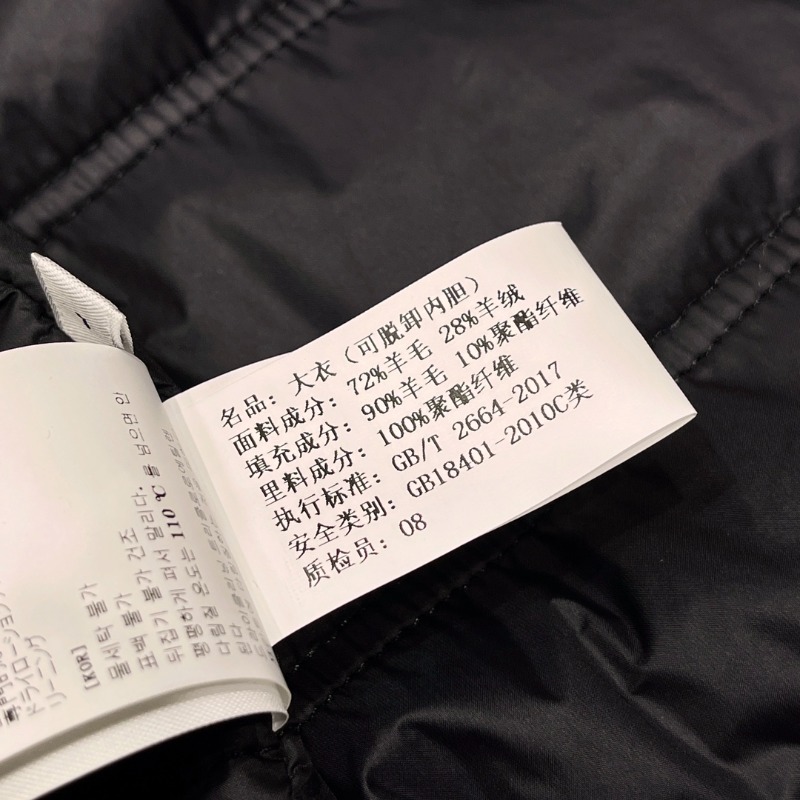 名品: 大衣 (可脱卸内胆)
面料成分: 72%羊毛 28%羊绒
填充成分: 90%羊毛 10%聚酯纤维
里料成分: 100%聚酯纤维
执行标准: GB/T 2664-2017
安全类别: GB18401-2010C类
质检员: 08
[KOR]
물세탁 불가
표백 불가
뒤집기 불가 건조
평평하게 펴서 말리다.
다림질 온도는 110℃를 넘으면 안
ドライクロ
リーニング